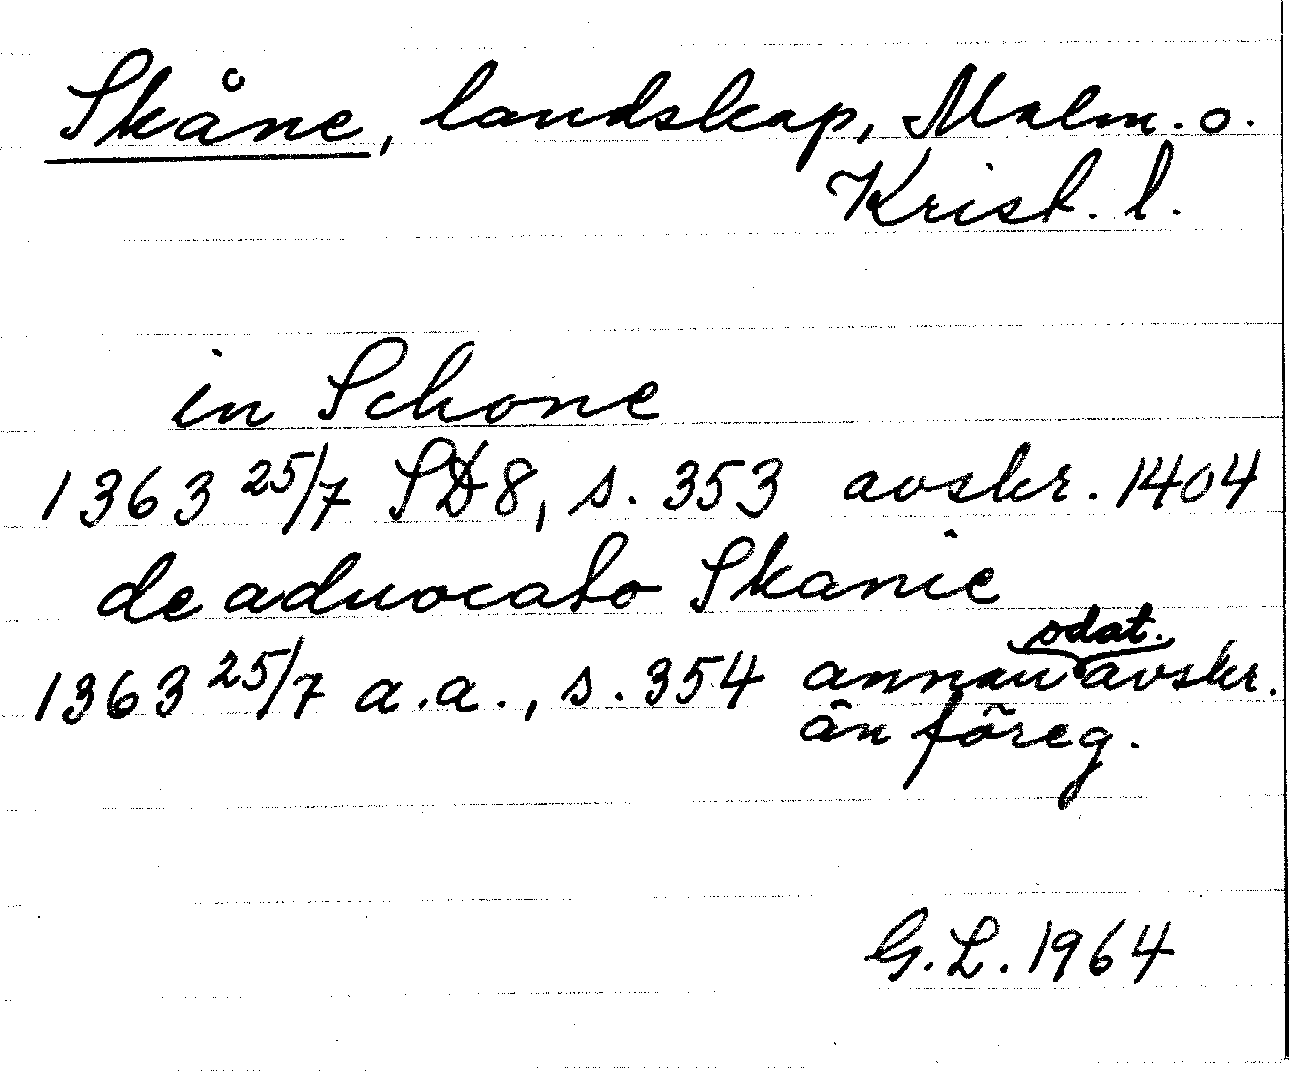 Skåne, landskap, Malm. o.
Krist. l.
in Schone
1363 25/7 SD 8, s. 353 avskr. 1404
de aduocato Skanie
1363 25/7 a.a., s. 354 annan odat. avskr.
än föreg.
G.L. 1964